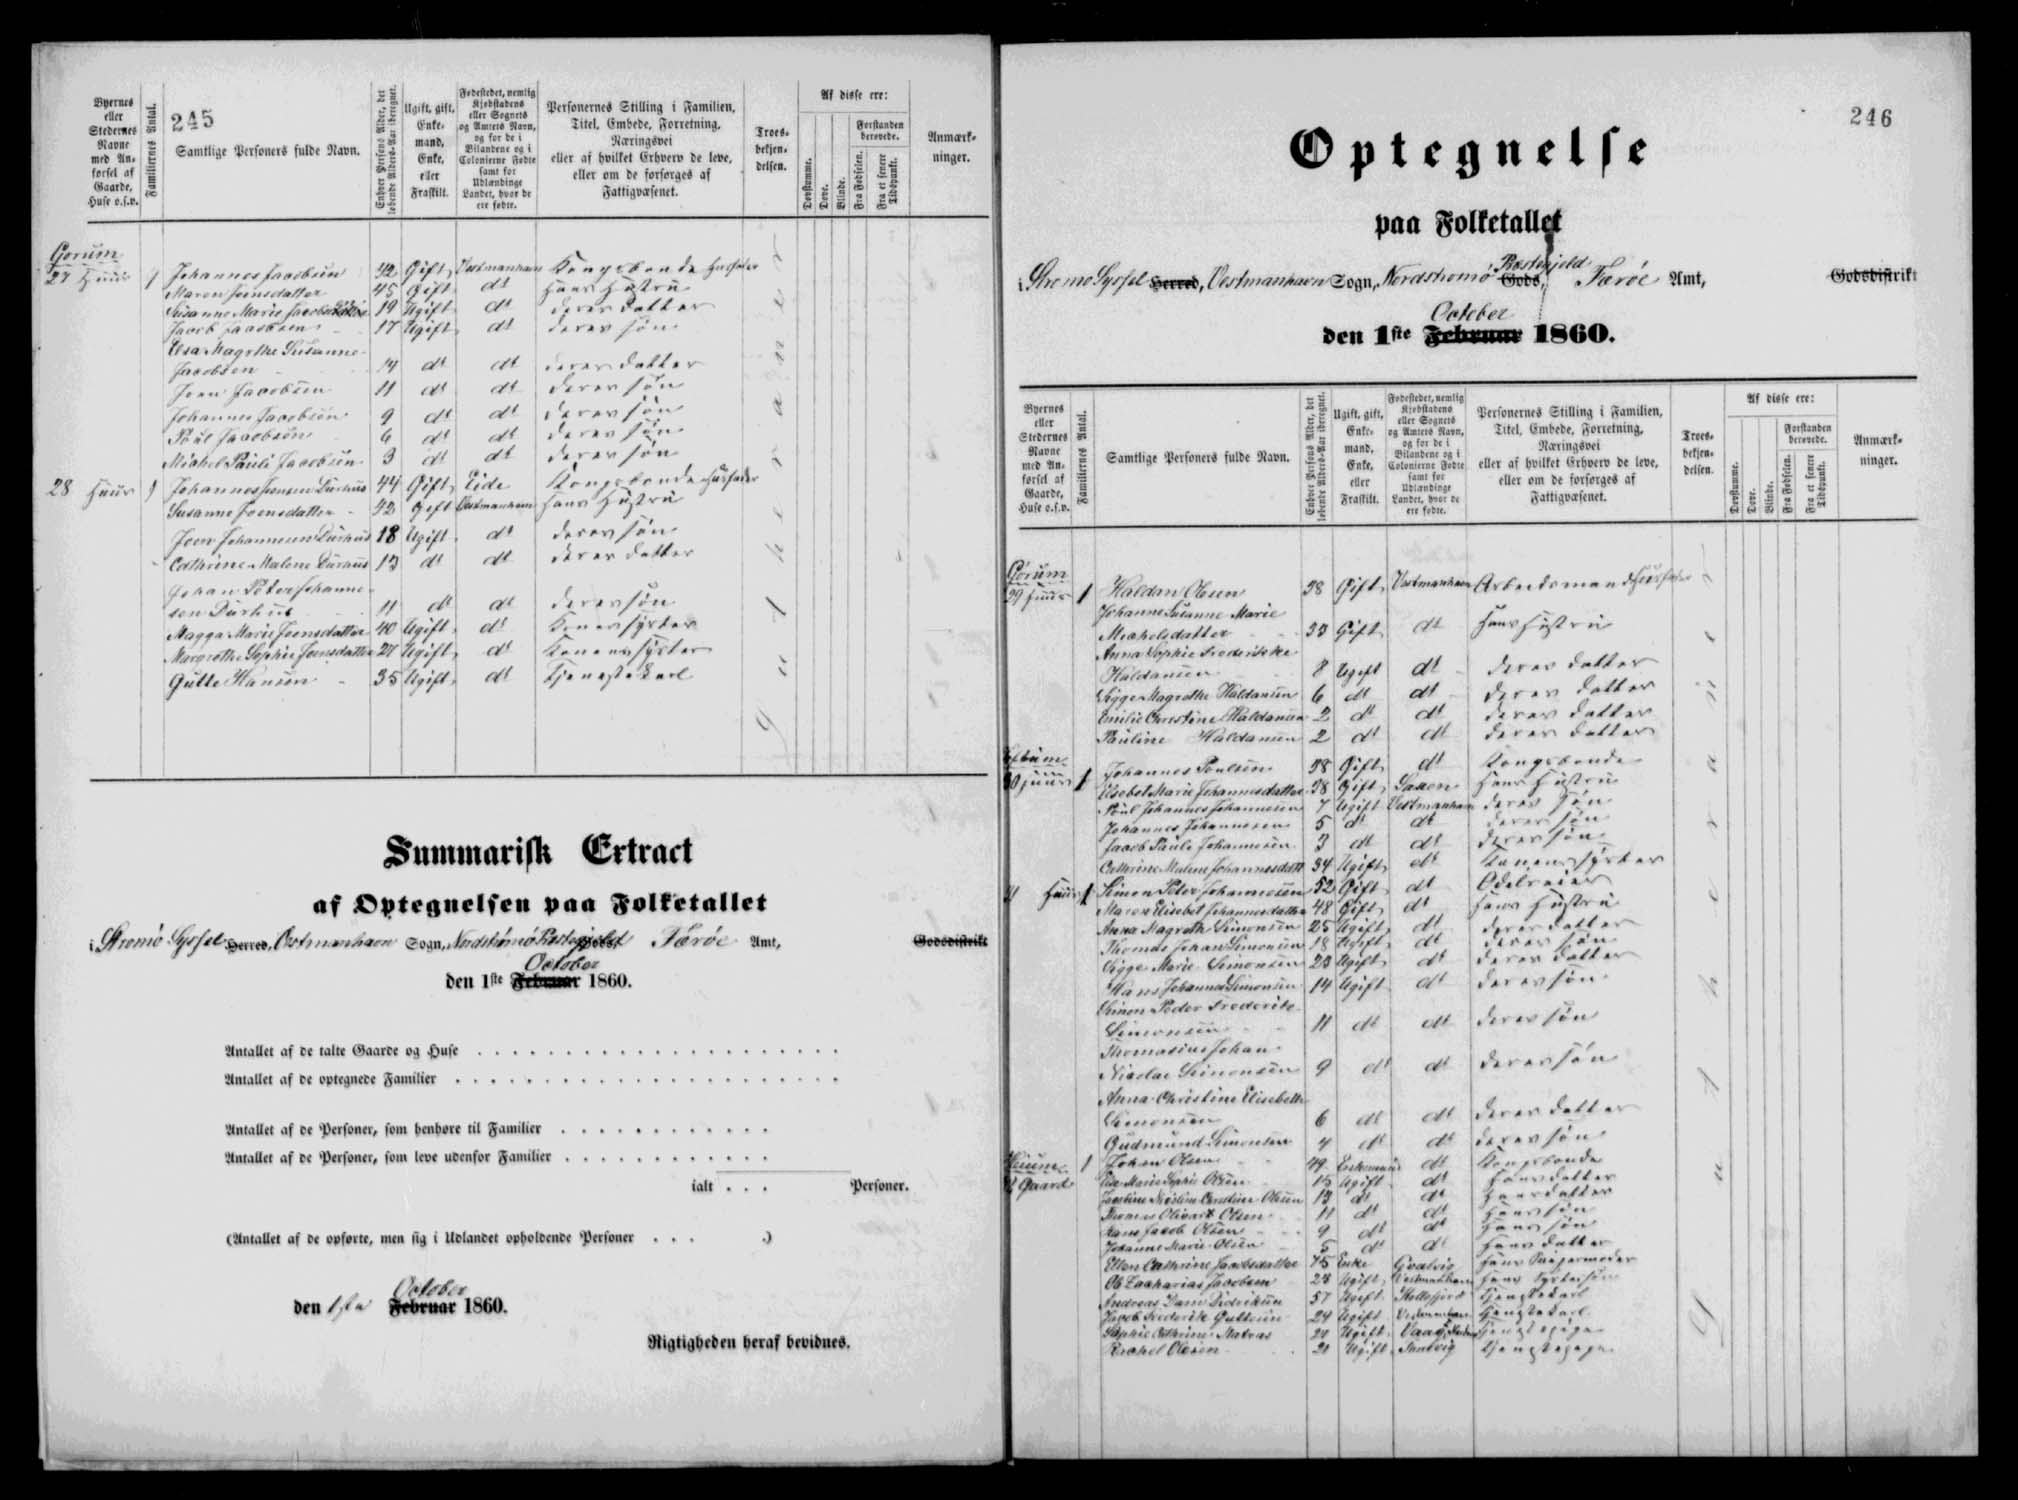 245
Byernes eller Stedernes Navne med Anførsel af Gaarde, Huse o.s.v.
Familiernes Antal.
Samtlige Personers fulde Navn.
Enhver Persons Alder, det løbende Alders-Aar iberegnet.
Ugift, gift, Enkemand, Enke, eller Fraskilt.
Fødestedet, nemlig Kjøbstadens eller Sognets og Amtets Navn, og for de i Bilandene og i Colonierne Fødte samt for Udlændinge Landet, hvor de ere fødte.
Personernes Stilling i Familien, Titel, Embede, Forretning, Næringsvei eller af hvilket Erhverv de leve, eller om de forsørges af Fattigvæsenet.
Troesbekjendelsen.
Af disse ere:
Døvstumme.
Døve.
Blinde.
Forstanden berøvede.
Fra Fødselen.
Fra et senere Tidspunkt.
Anmærkninger.
Gorum
27 Huus 1 Johannes Jacobsen 42 Gift Vestmanhavn Kongsbonde Husfader
Maren Joensdatter 45 Gift dt Hans Hustru
Susanne Marie Jacobsen 19 Ugift dt deres datter
Jacob Jacobsen 17 Ugift dt deres søn
Elsa Magrethe Susanne
Jacobsen 14 dt dt deres datter
Joen Jacobsen 11 dt dt deres søn
Johannes Jacobsen 9 dt dt deres søn
Poul Jacobsen 6 dt dt deres søn
Michel Pauli Jacobsen 3 dt dt deres søn
28 Huus 1 Johannes Joensen Durhuus 44 Gift Eide Kongsbonde Husfader
Susanne Joensdatter 42 Gift Vestmanhavn Hans Hustru
Joen Johannesen Durhus 18 Ugift dt deres søn
Cathrine Malene Durhuus 13 dt dt deres datter
Johan Peter Johanne-
sen Durhus 11 dt dt deres søn
Magga Marie Joensdatter 40 Ugift dt Konens syster
Margrethe Sophie Joensdatter 27 Ugift dt Konens syster
Gutte Hansen 35 Ugift dt Tjenestekarl
Lutheraner
Summarisk Extract
af Optegnelsen paa Folketallet
i Stromø Syssel Herred, Vestmanhavn Sogn, Nordstrømø Præstegjeld Gods, Færøe Amt, Godsdistrikt
October
den 1ste Februar 1860.
Antallet af de talte Gaarde og Huse
Antallet af de optegnede Familier
Antallet af de Personer, som henhøre til Familier
Antallet af de Personer, som leve udenfor Familier
ialt . . . Personer.
(Antallet af de opførte, men sig i Udlandet opholdende Personer . . . .)
October
den 1ste Februar 1860.
Rigtigheden heraf bevidnes.
246
Optegnelse
paa Folketallet
i Strømø Syssel Herred, Vestmanhavn Sogn, Nordstromø Præstegjeld Gods, Færøe Amt, Godsdistrikt
October
den 1ste Februar 1860.
Byernes eller Stedernes Navne med Anførsel af Gaarde, Huse o.s.v.
Familiernes Antal.
Samtlige Personers fulde Navn.
Enhver Persons Alder, det løbende Alders-Aar iberegnet.
Ugift, gift, Enkemand, Enke, eller Fraskilt.
Fødestedet, nemlig Kjøbstadens eller Sognets og Amtets Navn, og for de i Bilandene og i Colonierne Fødte samt for Udlændinge Landet, hvor de ere fødte.
Personernes Stilling i Familien, Titel, Embede, Forretning, Næringsvei eller af hvilket Erhverv de leve, eller om de forsørges af Fattigvæsenet.
Troesbekjendelsen.
Af disse ere:
Døvstumme.
Døve.
Blinde.
Forstanden berøvede.
Fra Fødselen.
Fra et senere Tidspunkt.
Anmærkninger.
Gørum
29 Huus 1 Haldan Olesen 38 Gift Vestmanhavn Arbeidsmand Husfader
Johanne Susanne Marie
Michelsdatter 33 Gift dt Hans Hustru
Anna Sophie Frederikke
Haldansen 8 Ugift dt deres datter
Sigge Magrethe Haldansen 6 dt dt deres datter
Emilie Christine Haldansen 2 dt dt deres datter
Pauline Haldansen 2 dt dt deres datter
30 Huus 1 Johannes Poulsen 38 Gift dt Kongsbonde
Elsebet Marie Johannesdatter 38 Gift Saxen Hans Hustru
Poul Johannes Johannesen 7 Ugift Vestmanhavn deres søn
Johannes Johannesen 5 dt dt deres søn
Jacob Paule Johannesen 3 dt dt deres søn
Cathrine Malene Johannesdatt 34 Ugift dt Konens syster
Huus 1 Simon Peter Johannesen 52 Gift dt Odelseier
Maren Elisebet Johannesdatter 48 Gift dt Hans Hustru
Anna Magreth Simonsen 25 Ugift dt deres datter
Thomas Johan Simonsen 18 Ugift dt deres søn
Sigge Marie Simonsen 23 Ugift dt deres datter
Hans Johannes Simonsen 14 Ugift dt deres søn
Simon Peder Frederik
Simonsen 11 dt dt deres søn
Thomasius Johan
Nicolai Simonsen 9 dt dt deres søn
Anna Christine Elisebeth
Simonsen 6 dt dt deres datter
Gudmund Simonsen 4 dt dt deres søn
Gaard 1 Johan Olsen 49 Enkemand dt Kongsbonde
Marie Sophie Olsen 15 Ugift dt Hans datter
Christine Olsen 13 dt dt Hans datter
Thomas Olivart Olsen 11 dt dt Hans søn
Hans Jacob Olsen 9 dt dt Hans søn
Johanne Marie Olsen 5 dt dt Hans datter
Ellen Cathrine Jacobsdatter 75 Enke Hans Svigermoder
Ole Zacharias Jacobsen 28 Ugift Vestmanhavn Hans
Andreas Dam Didriksen 57 Ugift Kollefjord Tjenstekarl
Jacob Frederik Guttesen 24 Ugift Vestmanhavn Tjenstekarl
Sophie Cathrine Matras 20 Ugift Tjenstepige
Rachel Olesen 21 Ugift Sandvig Tjenstepige
Lutheraner